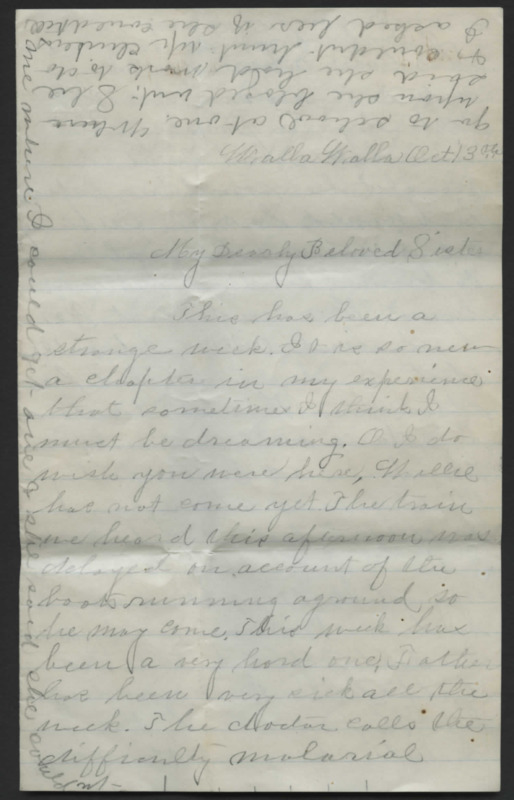 Walla Walla Oct 13th
My Dearly Beloved Sister
This has been a
strange week. It is so new
a chapter in my experience
that sometimes I think I
must be dreaming. O I do
wish you were here, Willie
has not come yet. The train
we heard this afternoon was
delayed on account of the
boats running aground so
he may come. This week has
been a very hard one, Father
has been very sick all the
week. The doctor calls the
difficulty malarial
go to school at one. Where
upon she
said she had work to do
& couldn't hunt up
I asked her if she
one where I could get one & she said she couldnt-